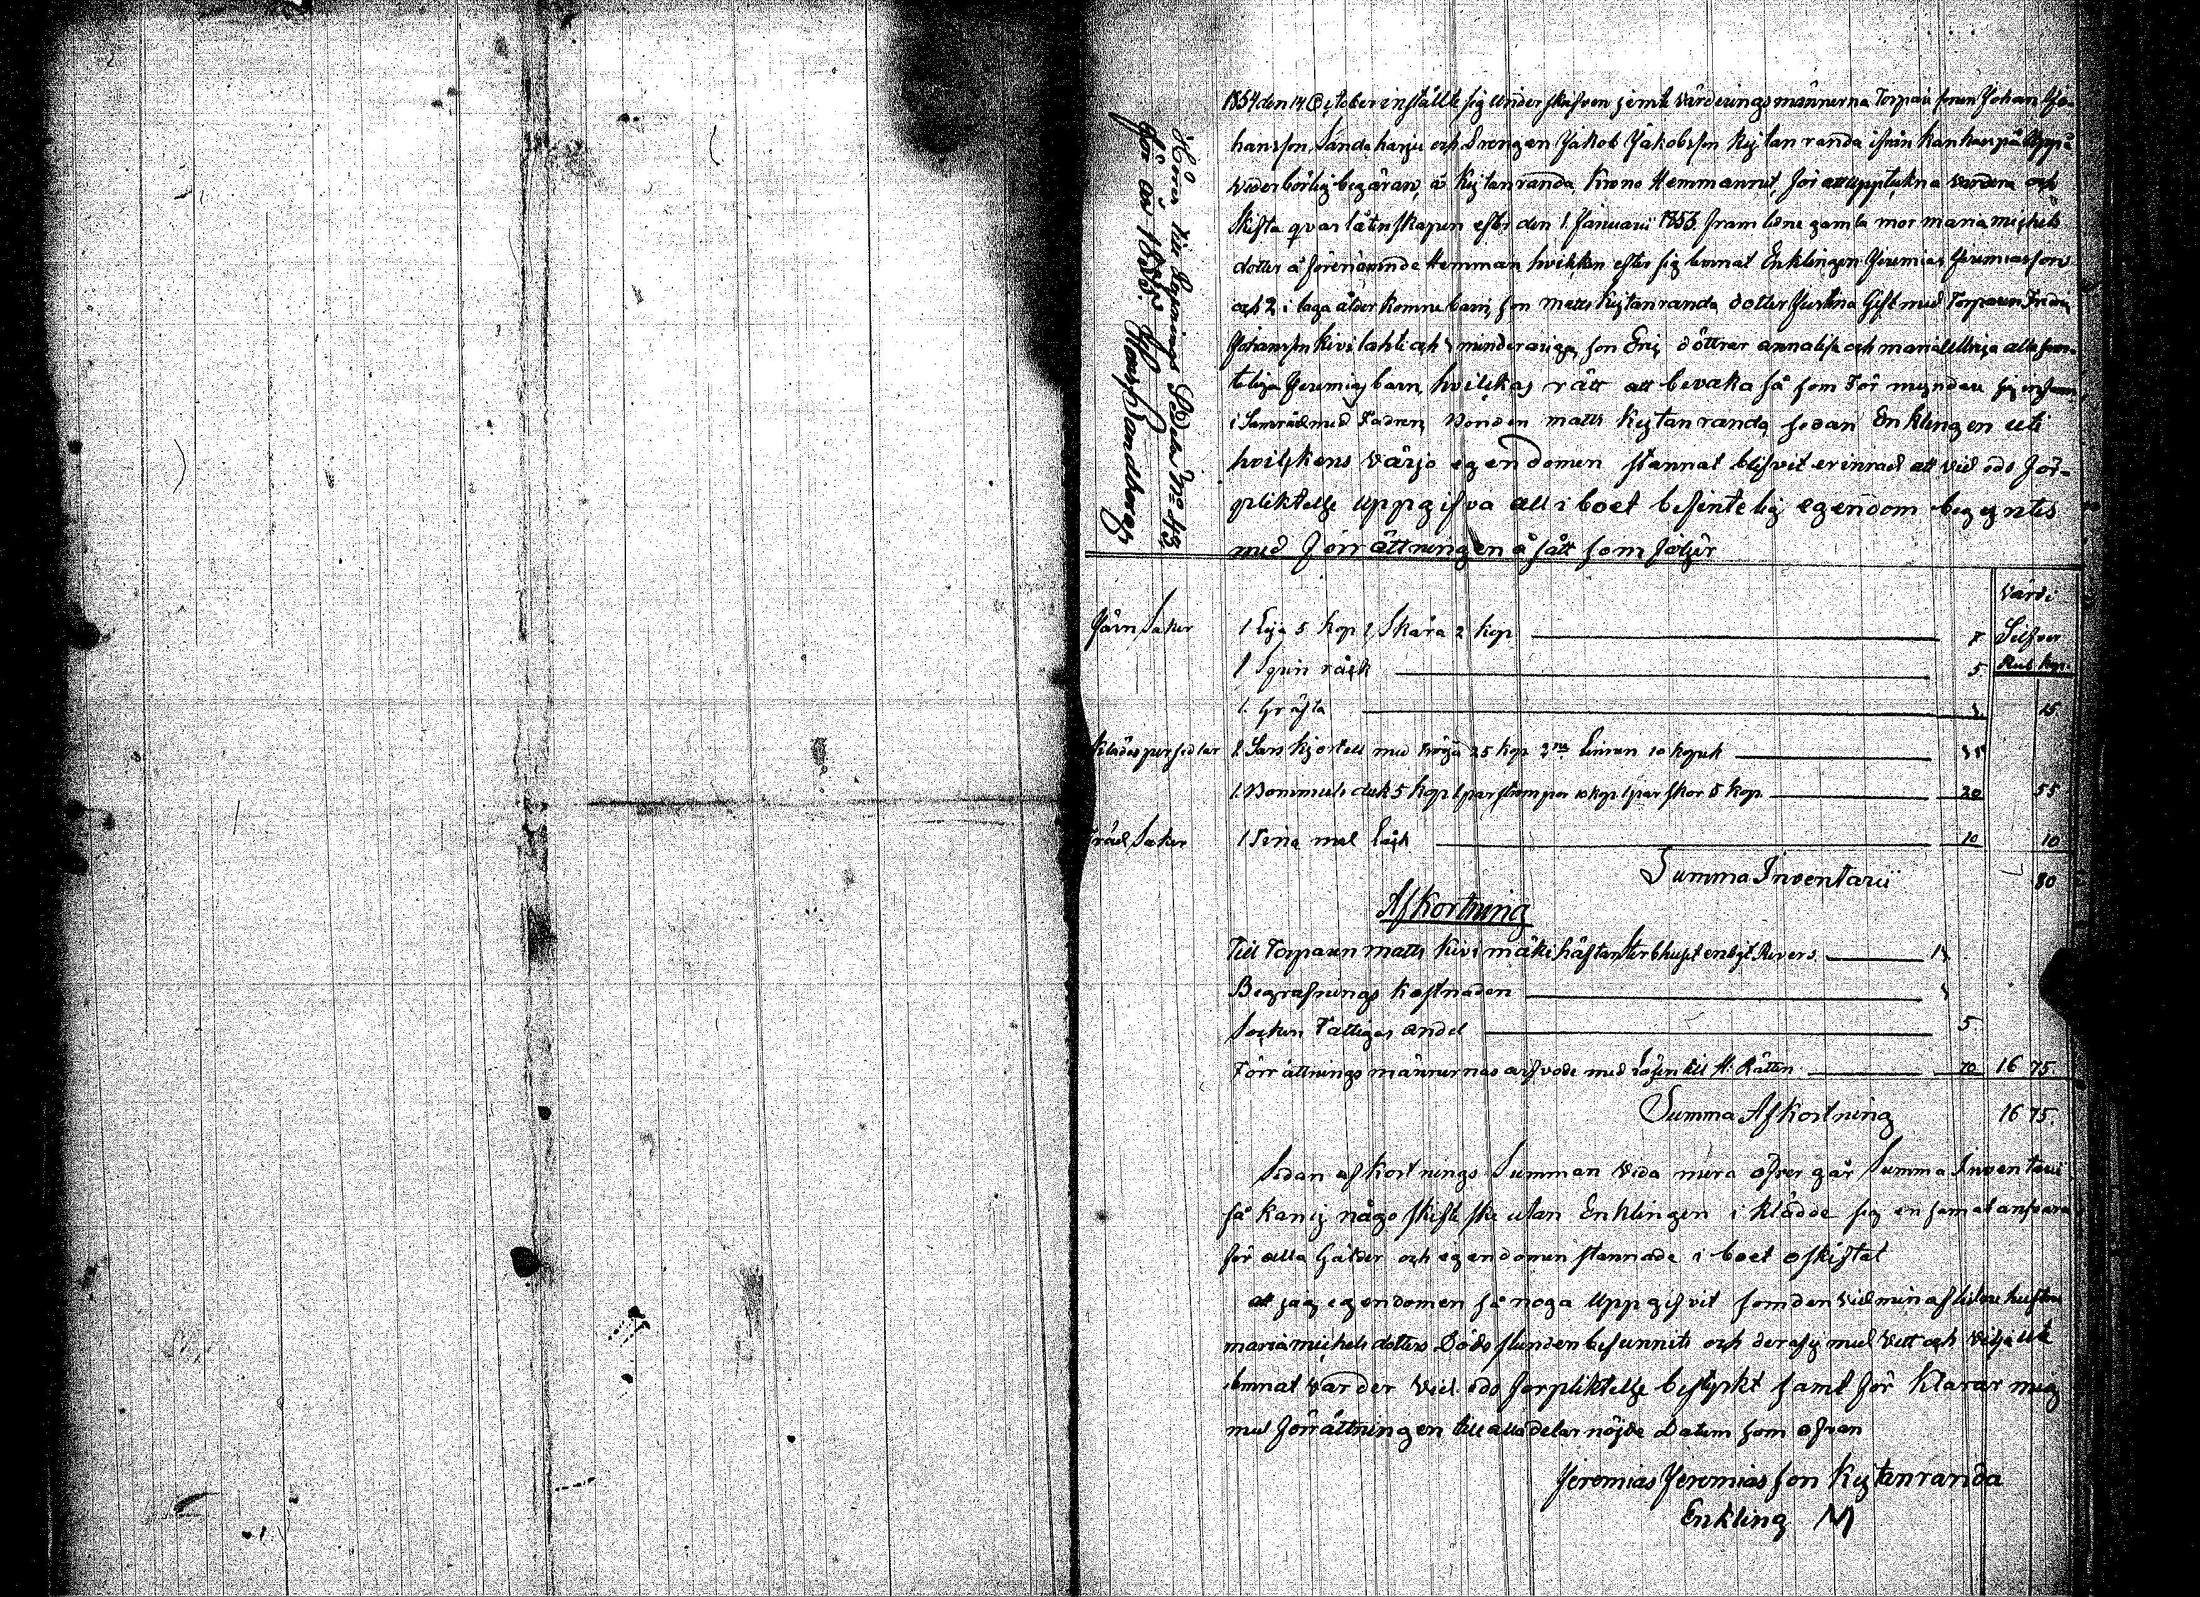 1854 den 14 October inställte sig underskrifven jemte värderingsmännerna Torparesonen Johan Jo-
hansson Sandaharju och Drengen Jakob Jakobsson Kytanranda ifrån Kankaripä
vederbörlig begäran, å Kytanranda Krono Hemmanet, för att uppteckna värdera och
Skifta qvarlåtenskapen efter den 1. Januarii 1853. framledne gamla mor maria michels
dotter å förenämnde Hemman hvilken efter sig lemnat Enklingen Jeremias Jeremiasson
och 2 i laga ålder komne barn, son matts Kytanranda dotter Justina Gift med Torparen
Johansson Kivilahti och minderåriga, son Eric döttrar annalisa och maria alla
Jeremias barn, hvilkas rätt att bevaka så som Förmyndare sig
i Samråd med Fadren Bonden matts Kytanranda, sedan Enklingen uti
hvilkens värjo egendomen stannat blifvit erinrad att vid eds för-
pliktelse uppgifva all i boet befintelig egendom begyntes
med förrättningen å sätt som följer
Hörer till Bevarings
för år 1855.
Värde
Silfver
Rub. kop.
Järn Saker 1 Lija 5 Kop 1 Skära 2 kop 7
1 Spin råck 5
1. Gräfta 3 15
Klädes persedlar 1 Sars kjortell med tröja 25 kop 2ne Linnen 10 kopek 35
1. Bommuls duk 5 kop 1 par strompor 10 kop 1 par skor 5 kop 20 55
Träd Saker 1 10 10
Summa Inventarii 80
Afkortning
Till Torparen matts Kivimäki enligt Revers
Begrafnings kostnaden
Socken Fattigas andel 5
Förrättnings männernas arfvode med Lösen till H. Rätten 70 16 75
Summa Afkortning 16 75.
Sedan afkortnings Summan vida mera öfver går Summa Inventarii
så kan ej någo skifte ske utan Enklingen i klädde sig ensamt ansvara
för alla Gälder och egendomen stannade i boet oskiftat
att jag egendomen så noga uppgifvit som den vid min aflidne hustru
maria michels dotters Dödsstunden befunnits och deraf ej med vett och vilja ute
lemnat varder vid eds förpliktelse bestyrkt samt förklarar mig
med förrättningen till alla delar nöjde Datum som ofvan
Jeremias Jeremiasson Kytanranda
Enkling